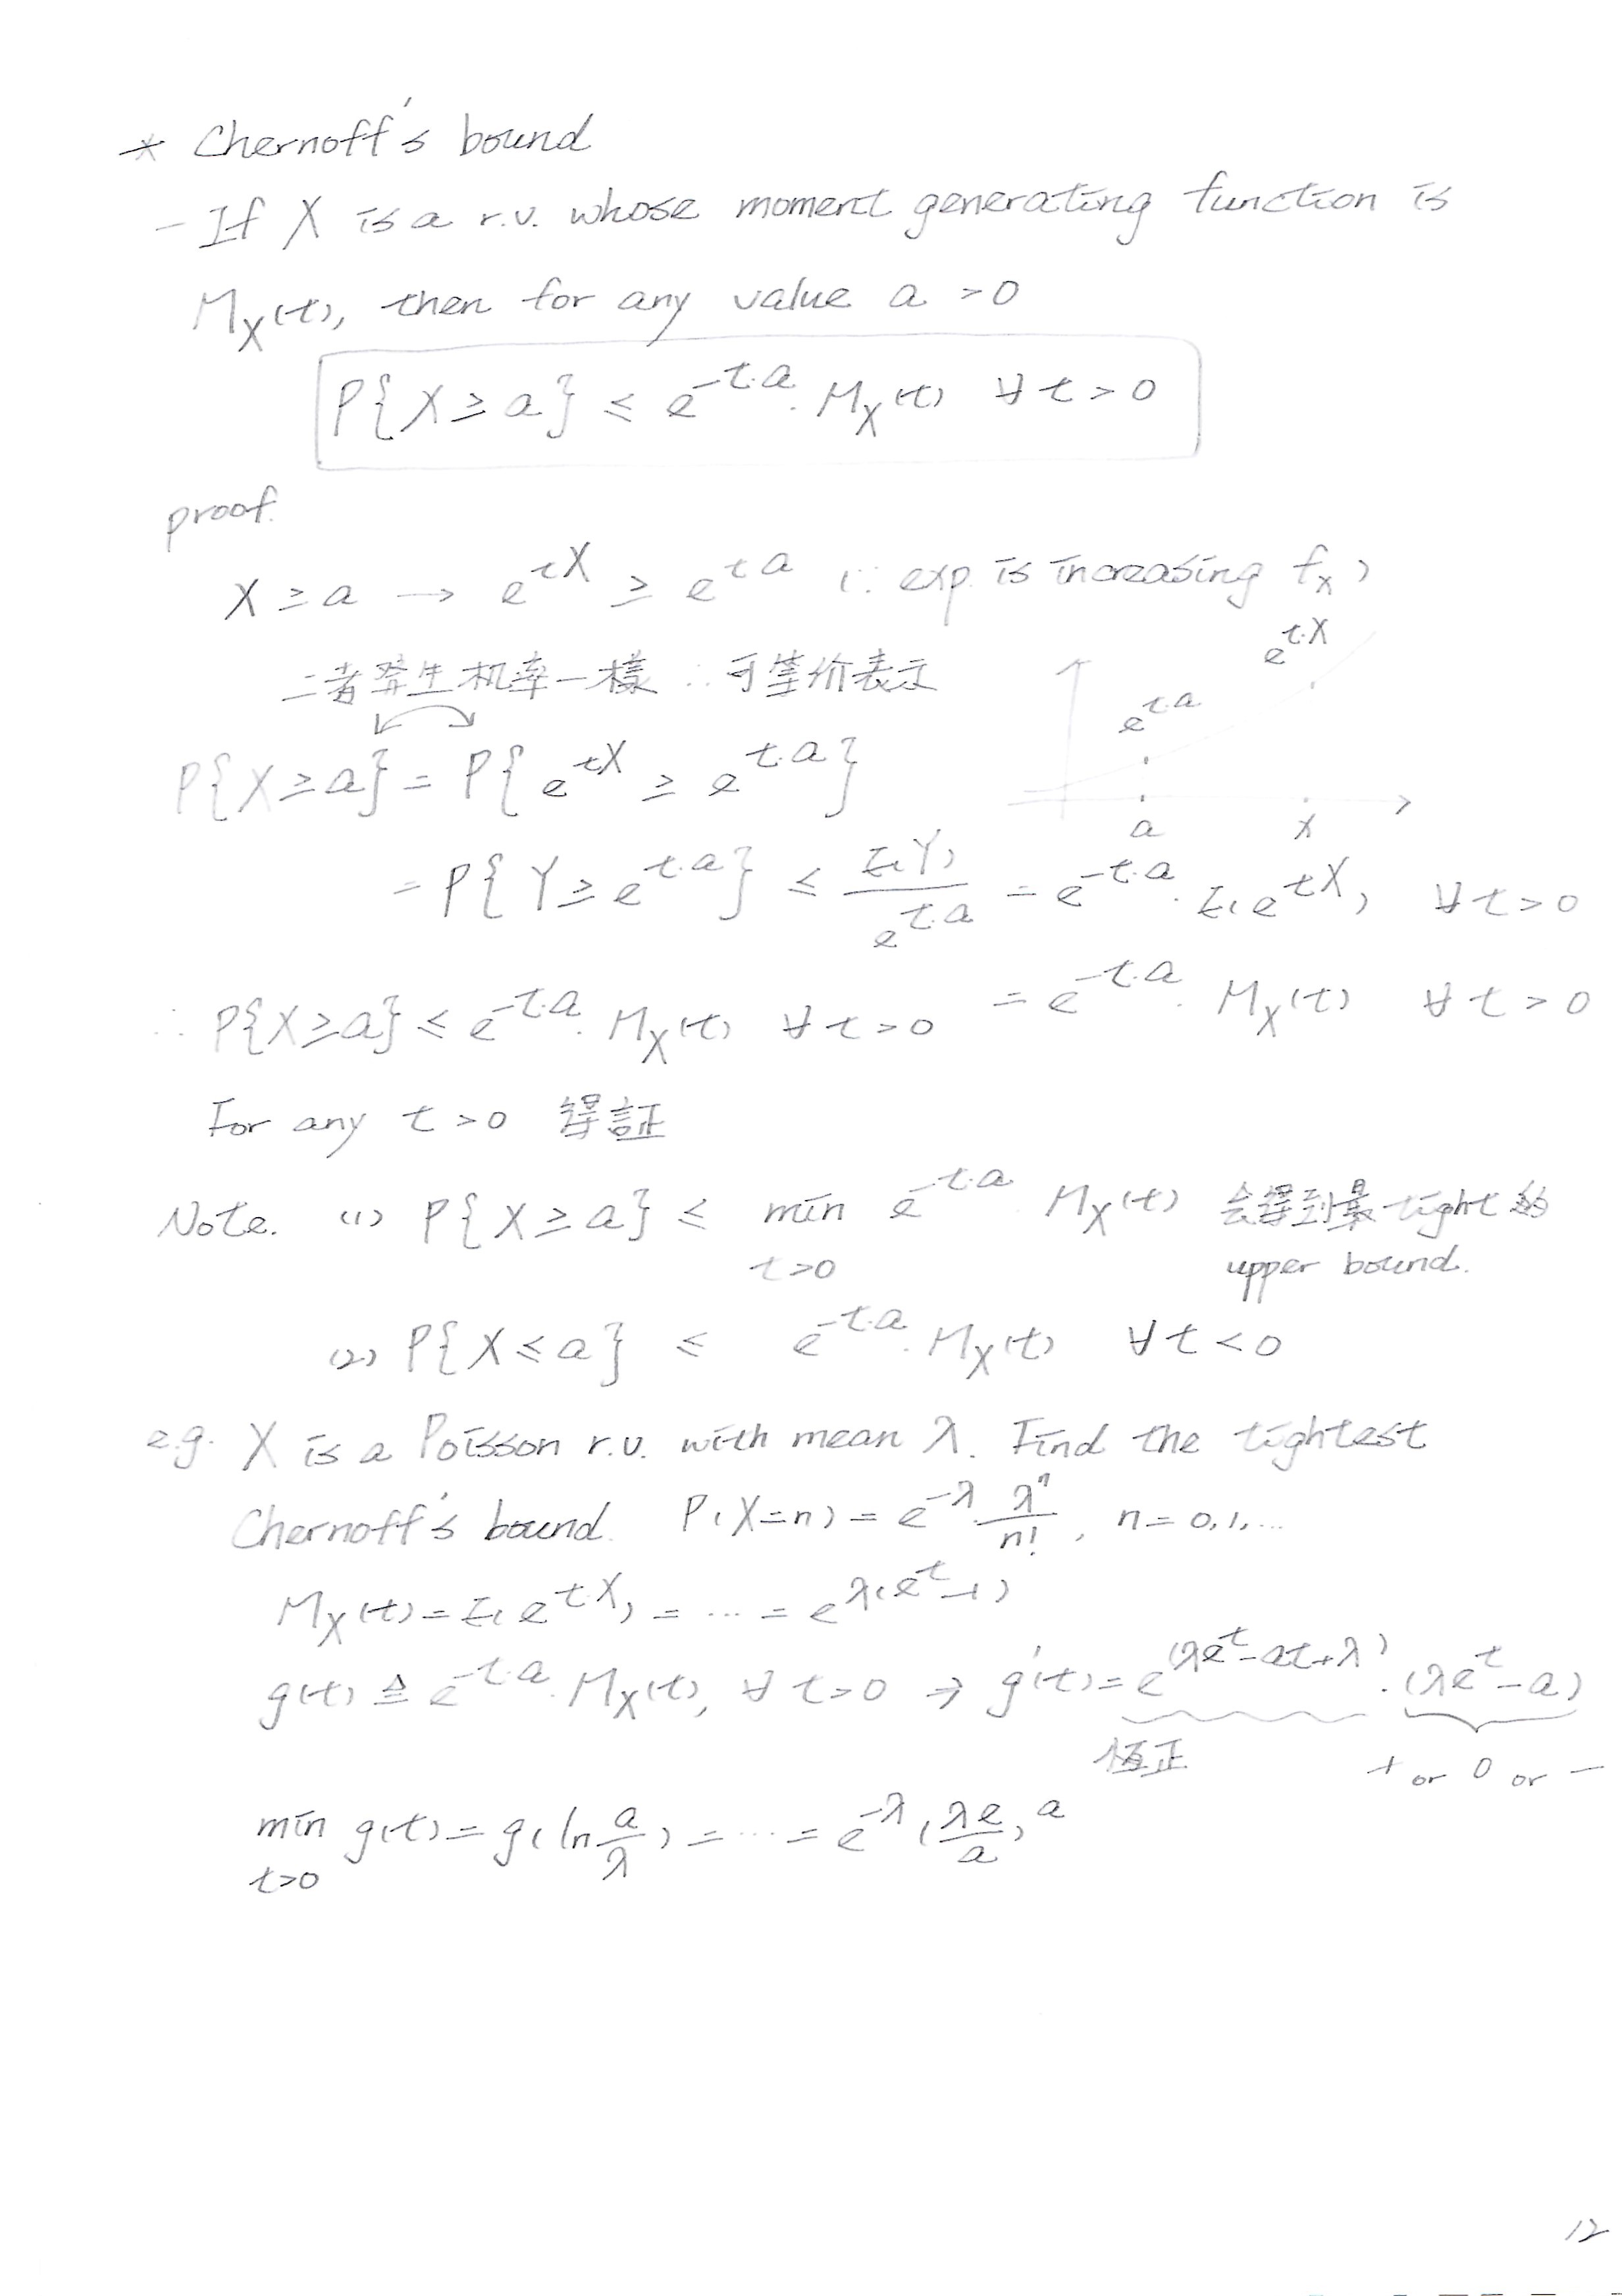 * Chernoff's bound
- If X is a r.v. whose moment generating function is
M_X(t), then for any value a > 0
P{X ≥ a} ≤ e^{-t·a} · M_X(t) ∀ t > 0
proof.
X ≥ a → e^{tX} ≥ e^{ta} (∵ exp. is increasing f_x)
二者發生机率一樣 ∴ 可等价表示
P{X ≥ a} = P{e^{tX} ≥ e^{t·a}}
e^{t·X}
e^{t·a}
a
x
= P{Y ≥ e^{t·a}} ≤ E(Y) / e^{t·a} = e^{-t·a} · E(e^{tX}), ∀ t > 0
= e^{-t·a} · M_X(t) ∀ t > 0
∴ P{X ≥ a} ≤ e^{-t·a} · M_X(t) ∀ t > 0
For any t > 0 得証
Note. (1) P{X ≥ a} ≤ min_{t>0} e^{-t·a} M_X(t) 会得到最 tight 的
upper bound.
(2) P{X ≤ a} ≤ e^{-t·a} · M_X(t) ∀ t < 0
e.g. X is a Poisson r.v. with mean λ. Find the tightest
Chernoff's bound. P(X=n) = e^{-λ} λ^n / n!, n = 0, 1, ...
M_X(t) = E(e^{t·X}) = ... = e^{λ(e^t - 1)}
g(t) ≜ e^{-t·a} · M_X(t), ∀ t > 0 ⇒ g'(t) = e^{(λe^t - at + λ)} · (λe^t - a)
恆正
+ or 0 or -
min_{t>0} g(t) = g(ln a/λ) = ... = e^{-λ} (λe/a)^a
12